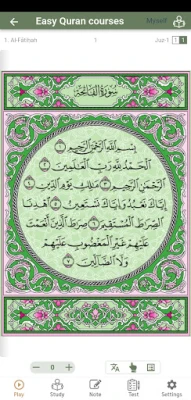 Easy Quran courses
Myself
1. Al-Fatihah 1 Juz-1 1 1
سُورَةُ الفَاتِحَةِ
بِسْمِ اللَّهِ الرَّحْمَٰنِ الرَّحِيمِ ١
الْحَمْدُ لِلَّهِ رَبِّ الْعَالَمِينَ ٢
الرَّحْمَٰنِ الرَّحِيمِ ٣ مَالِكِ يَوْمِ الدِّينِ ٤
إِيَّاكَ نَعْبُدُ وَإِيَّاكَ نَسْتَعِينُ ٥ اهْدِنَا
الصِّرَاطَ الْمُسْتَقِيمَ ٦ صِرَاطَ الَّذِينَ أَنْعَمْتَ
عَلَيْهِمْ غَيْرِ الْمَغْضُوبِ عَلَيْهِمْ
وَلَا الضَّالِّينَ ٧
− 0 +
Play Study Note Test Settings